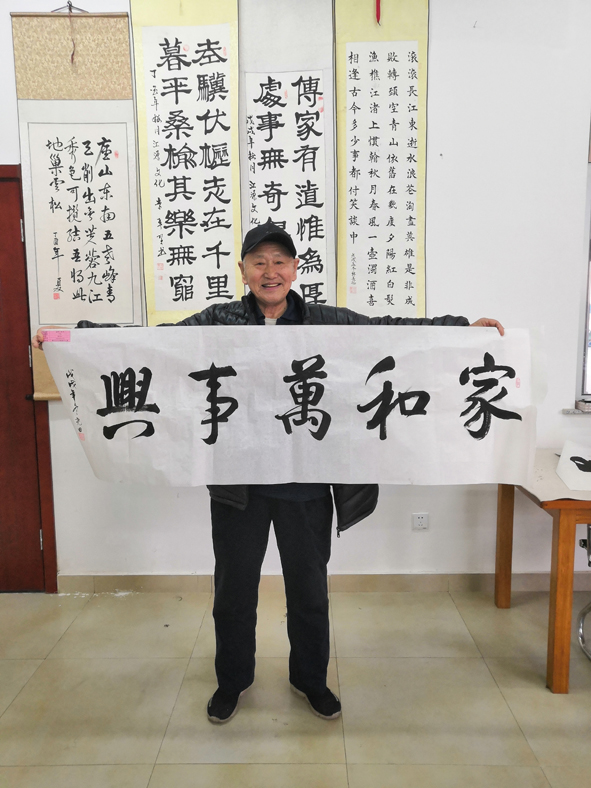 廬山東南五老峰青
天削出金芙蓉九江
秀色可攬結吾將此
地巢雲松
丁酉年夏
老驥伏櫪志在千里
暮年桑榆其樂無窮
丁酉年秋月
傳家有道惟為厚
處事無奇
戊戌年秋月
滚滚長江東逝水浪花淘盡英雄是非成
敗轉頭空青山依舊在幾度夕陽紅白髮
漁樵江渚上慣看秋月春風一壺濁酒喜
相逢古今多少事都付笑談中
家和萬事興
戊戌年